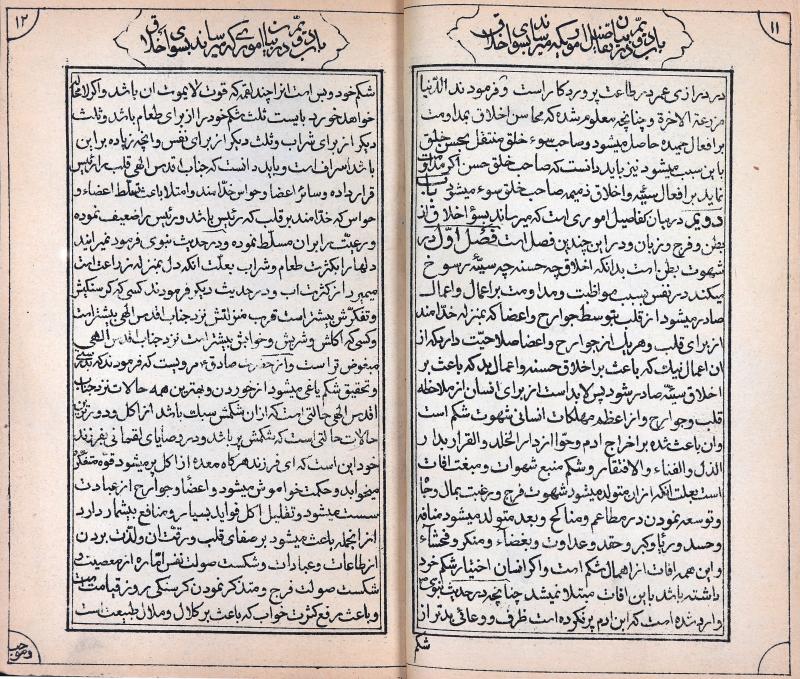 ۱۱
باب دویم در بیان تفاصیل اموریکه میرساند بسوی اخلاق
در درازی عمر در طاعت پروردکار است و فرمودند الدنیا
مزرعة الاخرة و چنانچه معلوم شده که محاسن اخلاق بمداومت
بر افعال حمیده حاصل میشود و صاحب سوء خلق منتقل بحسن خلق
باین سبب میشود نیز باید دانست که صاحب خلق حسن اکر مداومت
نماید بر افعال سیئه و اخلاق ذمیمه صاحب خلق سوء میشود باب
دویم در بیان تفاصیل اموری است که میرساند بسوء اخلاق از
بطن و فرج و زبان و در این چندین فصل است فصل اول در
شهوت بطن است بدانکه اخلاق چه حسنه چه سیئه رسوخ
میکند در نفس بسبب مواظبت و مداومت بر اعمال و اعمال
صادر میشود از قلب بتوسط جوارح و اعضا که بمنزله خدامند
از برای قلب و هر یک از جوارح و اعضا صلاحیت دارد که از
ان اعمال نیک که باعث بر اخلاق حسنه و اعمال بد که باعث بر
اخلاق سیئه صادر شود پس لابد است از برای انسان از ملاحظه
قلب و جوارح و از اعظم مهلکات انسانی شهوت شکم است
و ان باعث شده بر اخراج ادم و حوا از دار الخلد و القرار بدار
الذل و الفناء و الافتقار و شکم منبع شهوات و منبغت افات
است بعلت انکه از ان متولد میشود شهوت فرج و رغبت بمال و جاه
و توسعه نمودن در مطاعم و مناکح و بعد متولد میشود منافسه
و حسد و ریا و کبر و حقد و عداوت و بغضاء و منکر و فحشاء
و این همه افات از اهمال شکم است و اکر انسان اختیار شکم خود
داشته باشد باین افات مبتلا نمیشد چنانچه در حدیث نبوی
وارد شده است که ابن ادم پر نکرده است ظرف و وعائی بدتر از
شکم
۱۲
باب دویم در بیان اموری که میرساند بسوی اخلاق
شکم خود و بس است او را چند لقمه که قوت لایموت ان باشد و اکر لا محاله
خواهد خورد بایست ثلث شکم خود را از برای طعام باشد و ثلث
دیکر از برای شراب و ثلث دیکر از برای نفس و انچه زیاده بر این
باشد اسراف است و باید دانست که جناب اقدس الهی قلب را رئیس
قرار داده و سائر اعضا و حواس خدامند و امتلا باعث تسلط اعضاء و
حواس که خدامند بر قلب که رئیس باشد و رئیس را ضعیف نموده
و رعیت را بر ان مسلط نموده و در حدیث نبوی فرمود نمیرانید
دلها را بکثرت طعام و شراب بعلت انکه دل بمنزله زراعت است
میمیرد از کثرت اب و در حدیث دیکر فرمودند کسی که کرسنکیش
و تفکرش بیشتر است قرب منزلتش نزد جناب اقدس الهی بیشتر است
و کسی که اکلش و شربش و خوابش بیشتر است نزد جناب اقدس الهی
مبغوض تر است و از حضرت صادق ع مرویست که فرمودند که بدرستی
و تحقیق شکم یاغی میشود از خوردن و بهترین همه حالات نزد جناب
اقدس الهی حالتی است که از ان شکمش سبک باشد از اکل و دورترین
حالات حالتی است که شکمش پر باشد و در وصایای لقمانی بفرزند
خود این است که ای فرزند هر کاه معده از اکل پر میشود قوه متفکره
میخوابد و حکمت خواموش میشود و اعضا و جوارح از عبادت
سست میشود و تقلیل اکل فواید بسیار و منافع بیشمار دارد
از انجمله باعث میشود بر صفای قلب و رقت ان و لذت بردن
از طاعات و عبادات و شکست صولت نفس اماره از معصیت و
شکست صولت فرج و متذکر نمودن کرسنکی روز قیامت است
و باعث رفع کثرت خواب که باعث بر کلال و ملال طبیعت است
و موجب